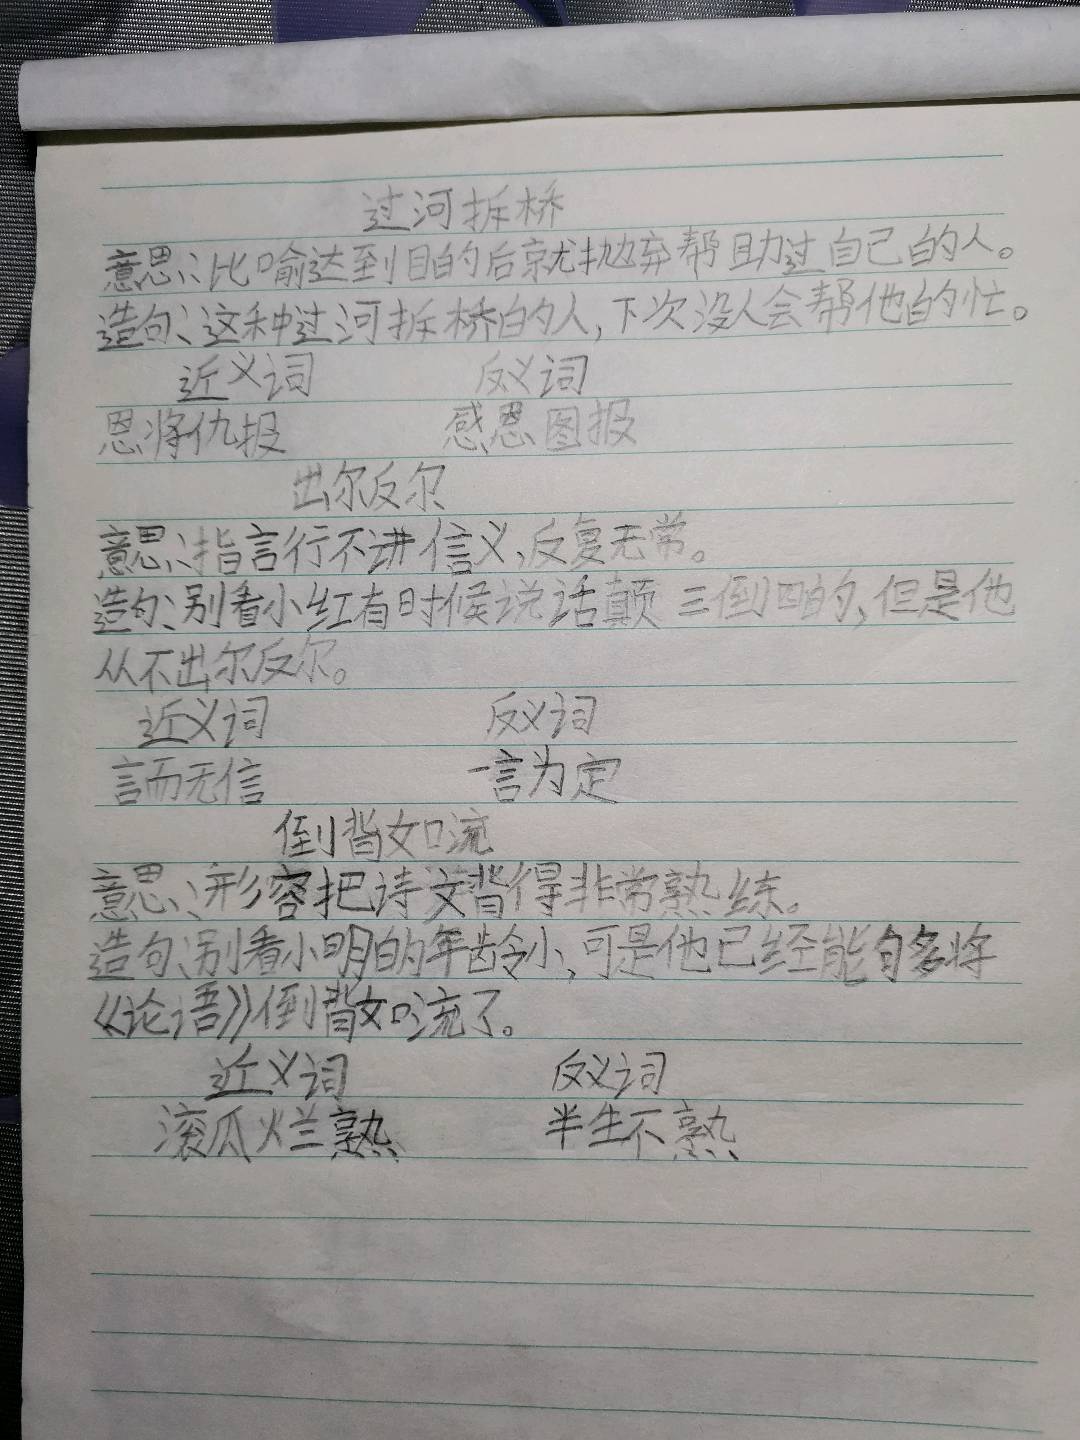 过河拆桥
意思:比喻达到目的后就抛弃帮助过自己的人。
造句:这种过河拆桥的人,下次没人会帮他的忙。
近义词 反义词
恩将仇报 感恩图报
出尔反尔
意思:指言行不讲信义,反复无常。
造句:别看小红有时候说话颠三倒四的,但是他
从不出尔反尔。
近义词 反义词
言而无信 一言为定
倒背如流
意思:形容把诗文背得非常熟练。
造句:别看小明的年龄小,可是他已经能句多将
《论语》倒背如流了。
近义词 反义词
滚瓜烂熟 半生不熟